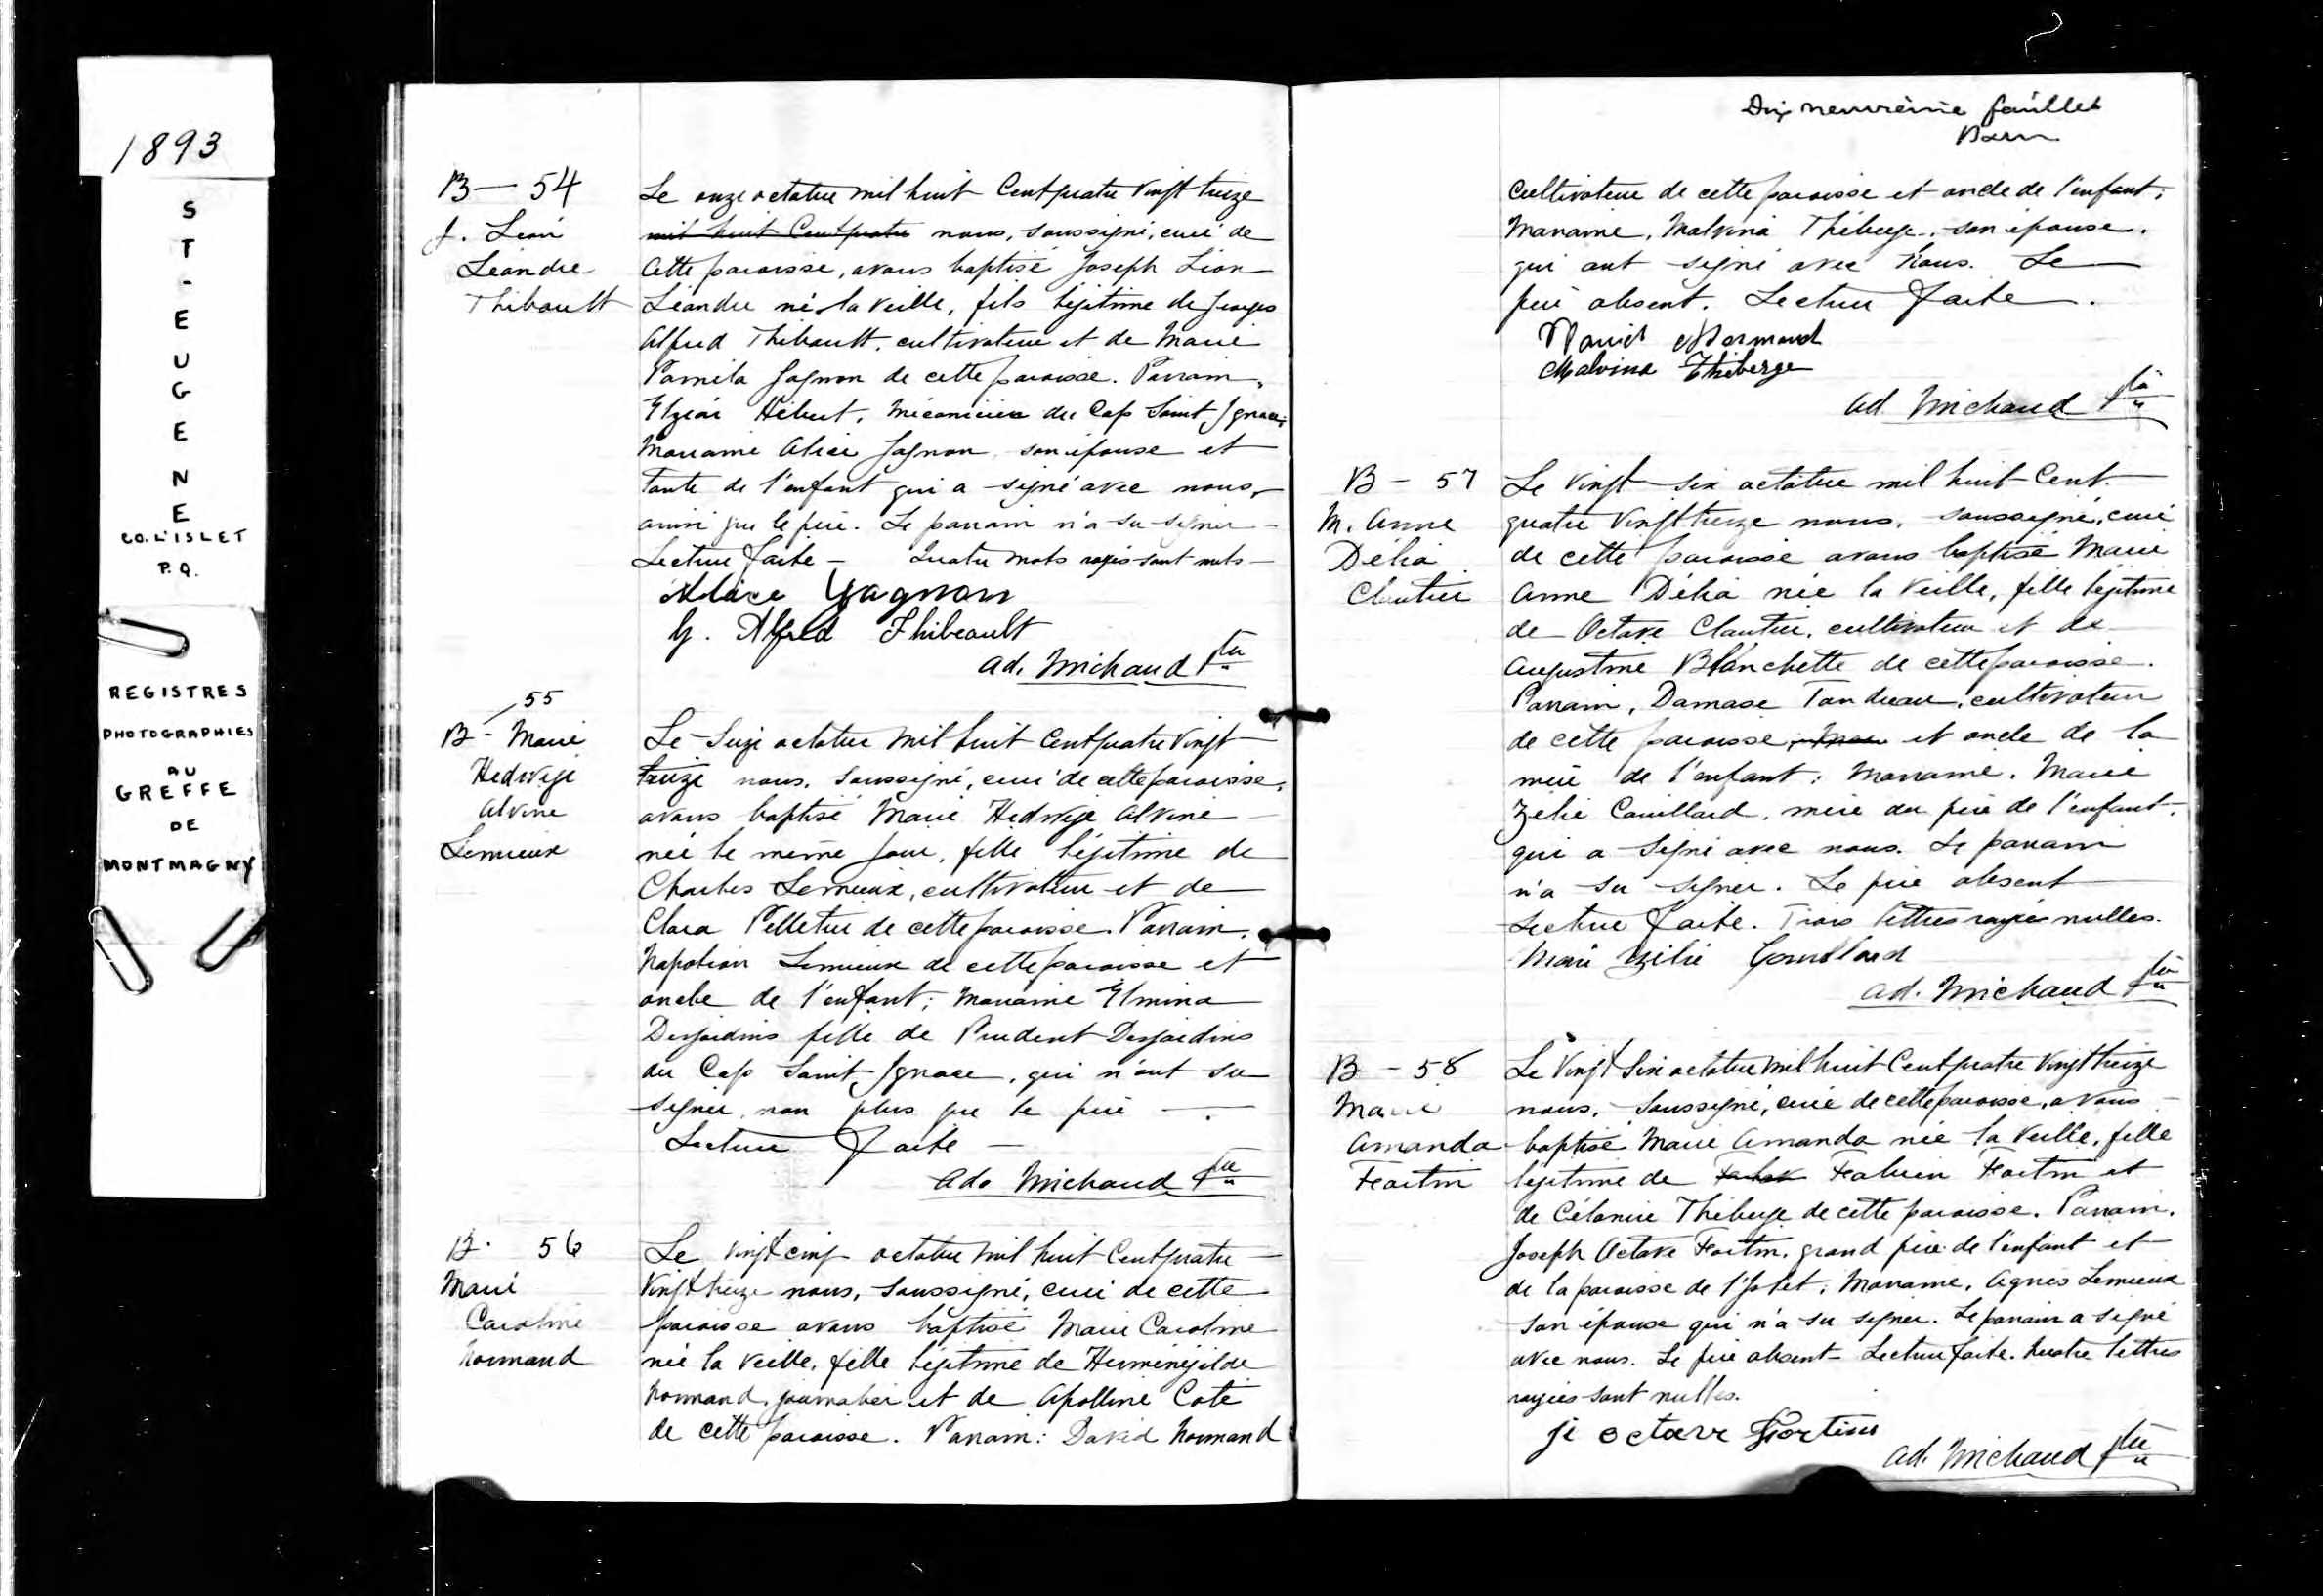 1893
ST-EUGENE
CO. L'ISLET
P.Q.
REGISTRES
PHOTOGRAPHIES
AU
GREFFE
DE
MONTMAGNY
B — 54
J. Léon
Léandre
Thibault
Le onze octobre mil huit cent quatre vingt treize
mil huit cent quatre nous, soussigné, curé de
cette paroisse, avons baptisé Joseph Léon
Léandre né la veille, fils légitime de Georges
Alfred Thibault, cultivateur et de Marie
Pamila Gagnon de cette paroisse. Parrain,
Elzéar Hébert, mécanicien du Cap Saint Ignace;
Marraine Alice Gagnon son épouse et
tante de l'enfant qui a signé avec nous,
ainsi que le père. Le parrain n'a su signer —
Lecture faite — Quatre mots rayés sont nuls —
Alice Gagnon
G. Alfred Thibeault
Ad. Michaud Ptre
55
B - Marie
Hedwige
Alvine
Lemieux
Le Seize octobre mil huit cent quatre vingt
treize nous, soussigné, curé de cette paroisse,
avons baptisé Marie Hedwige Alvine
née le même jour, fille légitime de
Charles Lemieux, cultivateur et de
Clara Pelletier de cette paroisse. Parrain,
Napoléon Lemieux de cette paroisse et
oncle de l'enfant; Marraine Elmina
Desjardins fille de Prudent Desjardins
du Cap Saint Ignace, qui n'ont su
signer, non plus que le père —.
Lecture faite —
Ad. Michaud Ptre
B. 56
Marie
Caroline
Normand
Le vingt cinq octobre mil huit cent quatre
vingt treize nous, soussigné, curé de cette
paroisse avons baptisé Marie Caroline
née la veille, fille légitime de Herménégilde
Normand, journalier et de Apolline Coté
de cette paroisse. Parrain: David Normand
Dix neuvième feuillet
cultivateur de cette paroisse et oncle de l'enfant;
Marraine, Malvina Théberge, son épouse,
qui ont signé avec nous. Le
père absent. Lecture faite.
David Normand
Malvina Thiberge
Ad. Michaud Ptre
B - 57
M. Anne
Délia
Cloutier
Le vingt six octobre mil huit cent
quatre vingt treize nous, soussigné, curé
de cette paroisse avons baptisé Marie
Anne Délia née la veille, fille légitime
de Octave Cloutier, cultivateur et de
Augustine Blanchette de cette paroisse.
Parrain, Damase Tondreau, cultivateur
de cette paroisse, et oncle de la
mère de l'enfant; Marraine, Marie
Zélie Couillard, mère du père de l'enfant,
qui a signé avec nous. Le parrain
n'a su signer. Le père absent
Lecture faite. Trois lettres rayées nulles.
Marie Zélie Couillard
Ad. Michaud Ptre
B - 58
Marie
Amanda
Fortin
Le Vingt Six octobre mil huit cent quatre vingt treize
nous, soussigné, curé de cette paroisse, avons
baptisé Marie Amanda née la veille, fille
légitime de Fabien Fortin et
de Célanire Théberge de cette paroisse. Parrain,
Joseph Octave Fortin, grand père de l'enfant et
de la paroisse de l'Islet; Marraine, Agnès Lemieux
son épouse qui n'a su signer. Le parrain a signé
avec nous. Le père absent — Lecture faite. Quatre lettres
rayées sont nulles.
J octave Fortin
Ad. Michaud Ptre